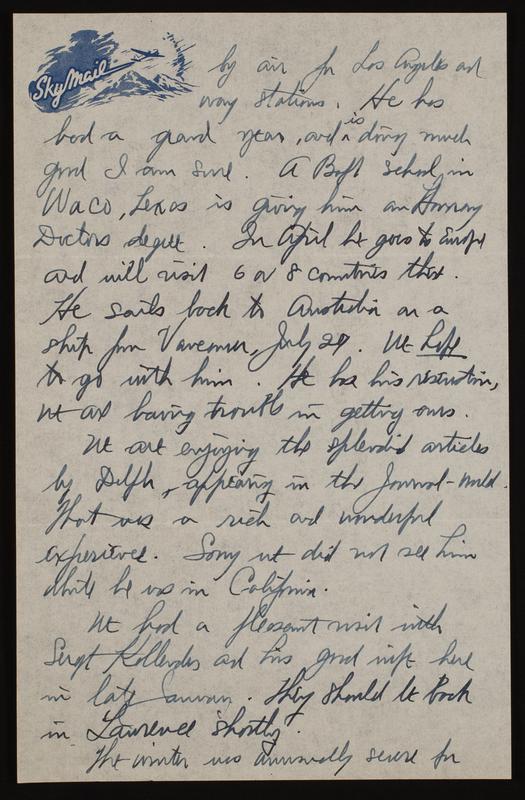 Sky Mail
by air for Los Angeles and
way stations. He has
had a grand year, and is doing much
good I am sure. A Bapt school in
Waco, Texas is giving him an Honorary
Doctors degree. In April he goes to Europe
and will visit 6 or 8 countries there.
He sails back to Australia on a
ship from Vancouver, July 27. We hope
to go with him. He has his reservation,
we are having trouble in getting ours.
We are enjoying the splendid articles
by Dolph, appearing in the Journal-World.
That was a rich and wonderful
experience. Sorry we did not see him
while he was in California.
We had a pleasant visit with
Sergt and his good wife here
in late January. They should be back
in Lawrence shortly.
The winter was unusually severe for